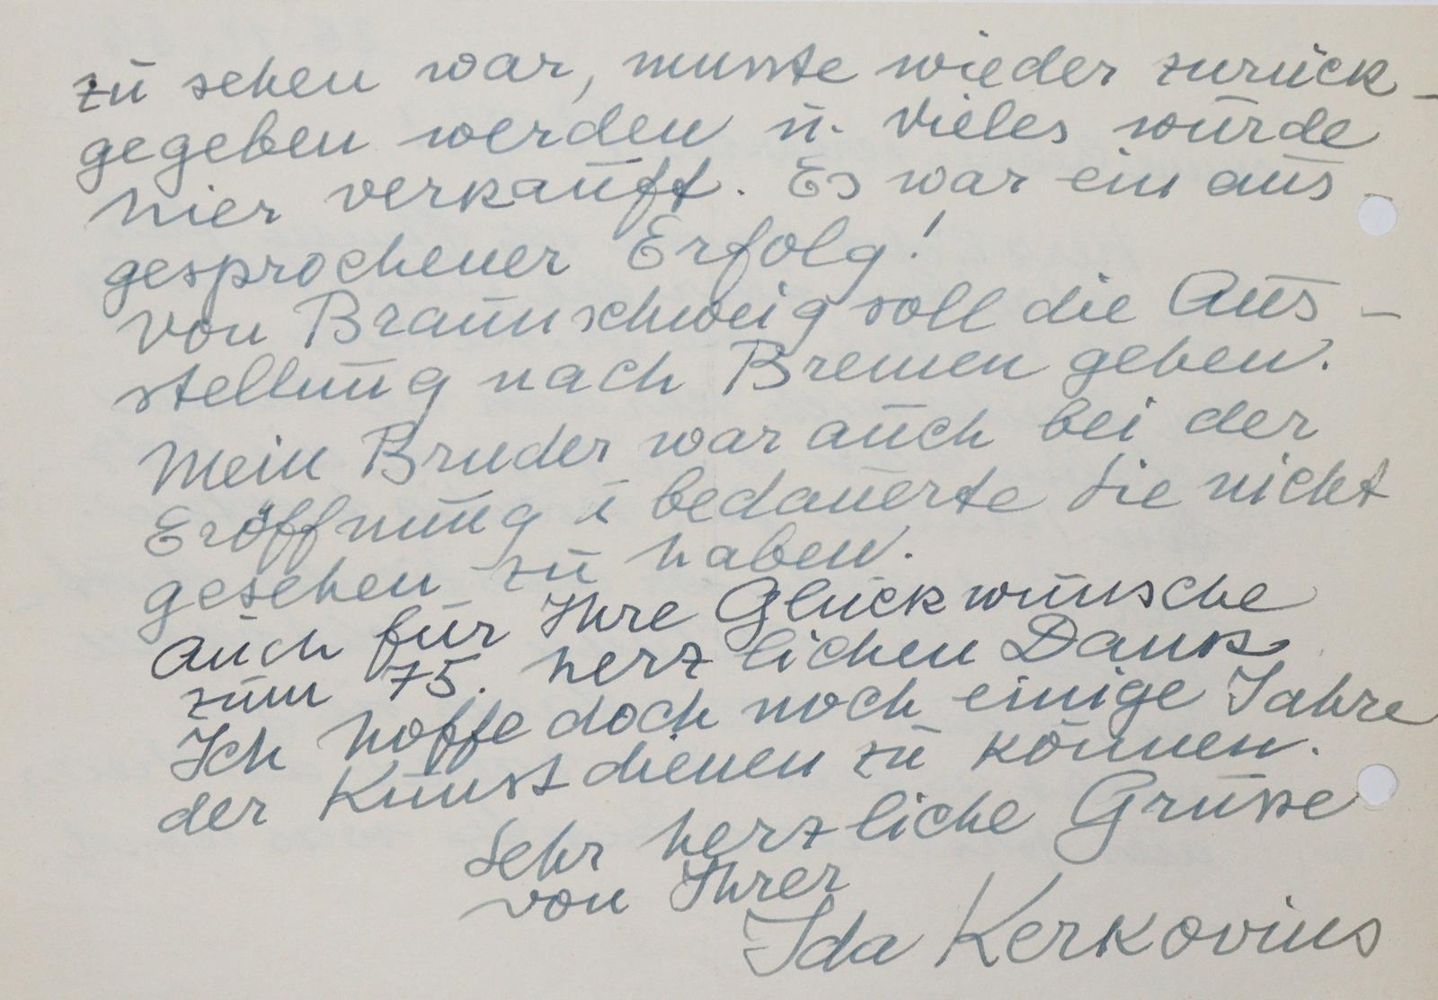 zu sehen war, musste wieder zurück-
gegeben werden u. vieles wurde
hier verkauft. Es war ein aus-
gesprochener Erfolg!
Von Braunschweig soll die Aus-
stellung nach Bremen gehen.
Mein Bruder war auch bei der
Eröffnung u bedauerte Sie nicht
gesehen zu haben.
Auch für Ihre Glückwünsche
zum 75. herzlichen Dank.
Ich hoffe doch noch einige Jahre
der Kunst dienen zu können.
Sehr herzliche Grüsse
von Ihrer
Ida Kerkovius